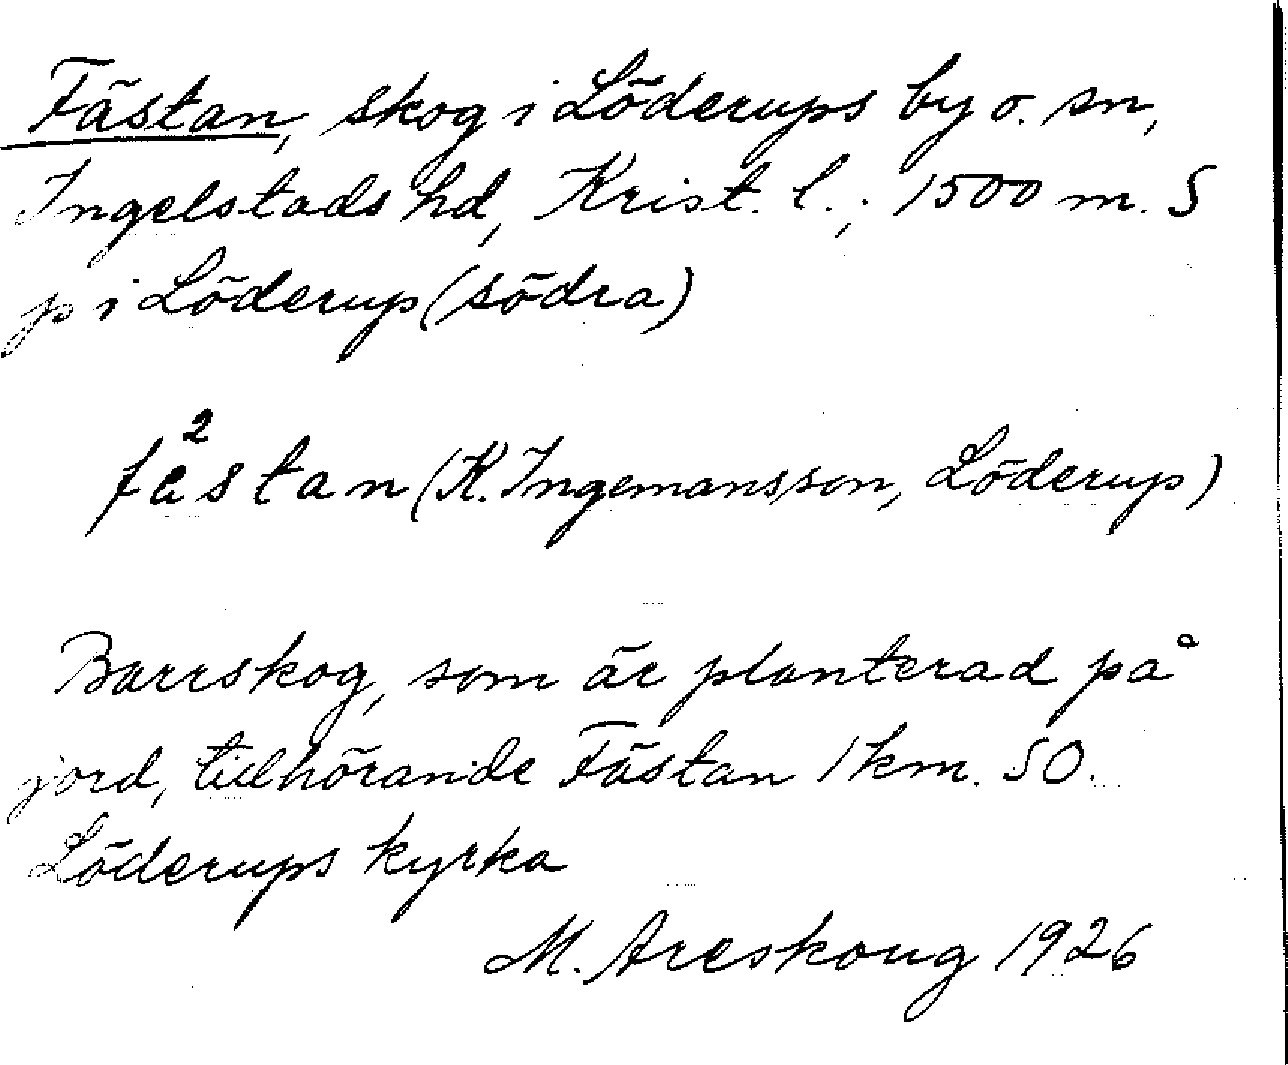 Fästan, skog i Löderups by o. sn,
Ingelstads hd, Krist. l.; 1500 m. S
p i Löderup (södra)
fä²stan (K. Ingemansson, Löderup)
Barrskog, som är planterad på
jord, tillhörande Fästan 1 km. SO.
Löderups kyrka
M. Areskoug 1926